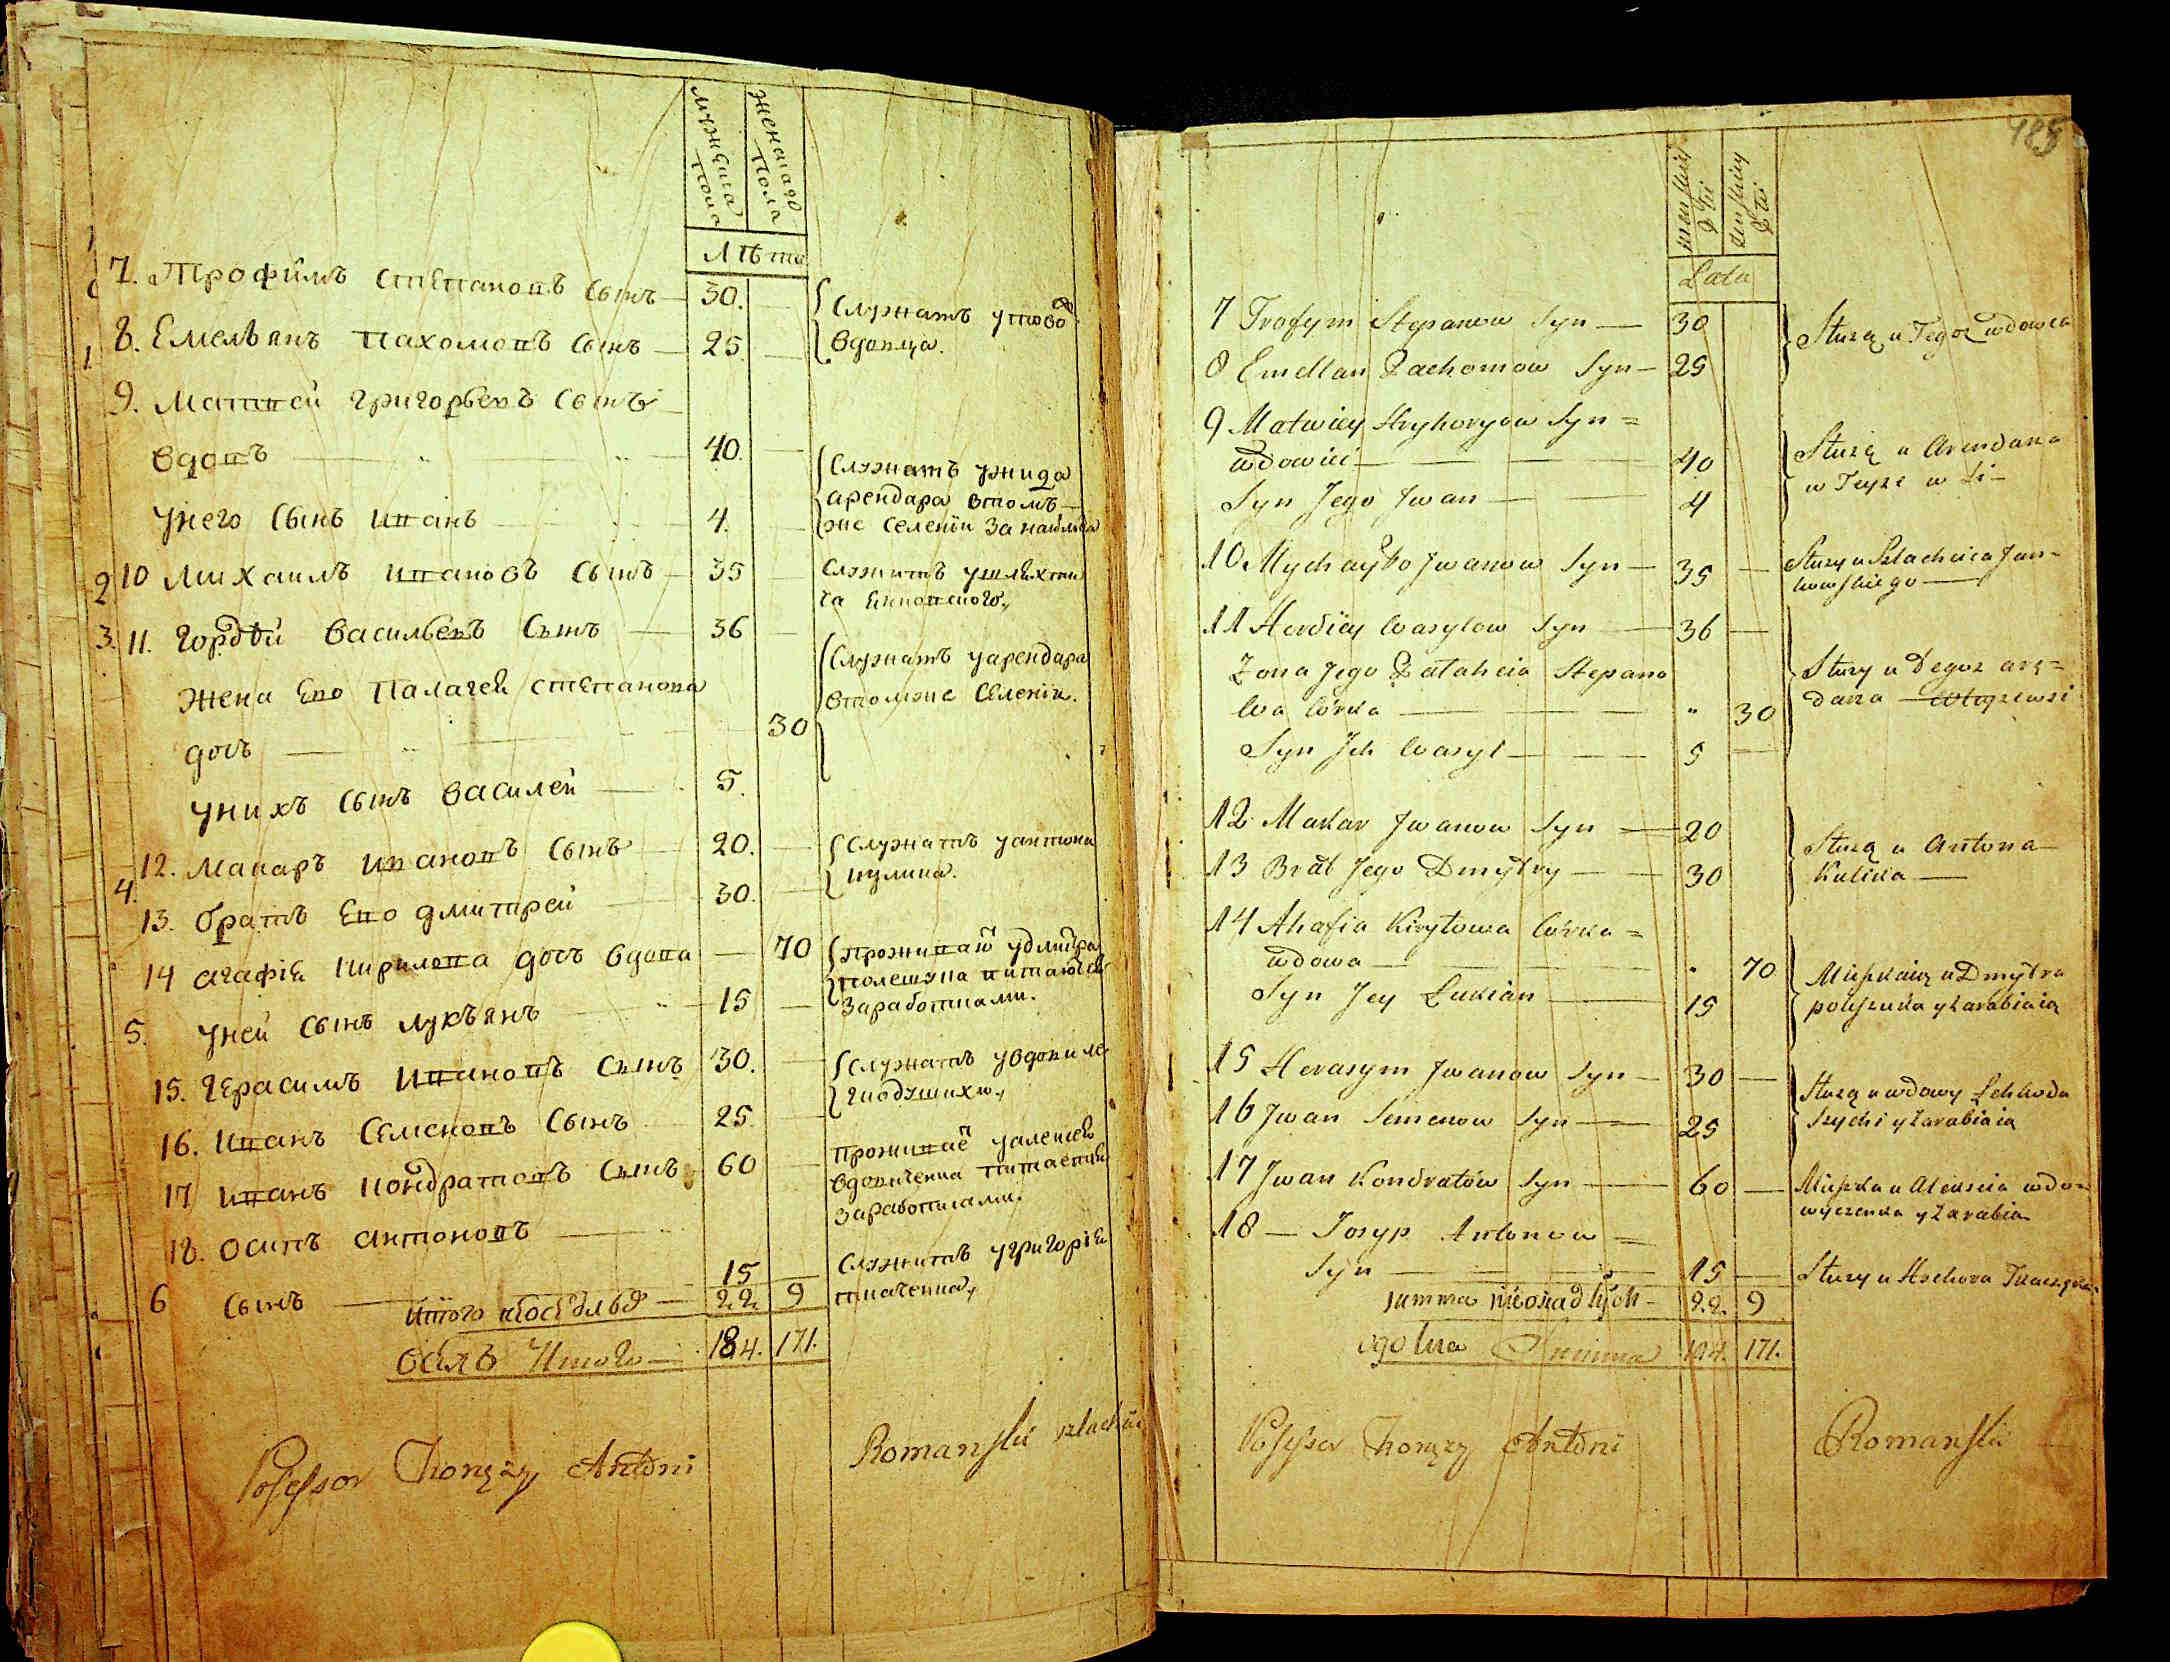 мужеска пола
женскаго пола
Лѣта
7. Трофимъ Степановъ Сынъ — 30.
Служатъ утово
вдовца.
8. Емельянъ Пахомовъ Сынъ — 25.
9. Матвей Григорьевъ Сынъ
вдовъ — 40.
Служатъ ужида
арендара втомъ
же селенїи за наймы
унего Сынъ Иванъ 4.
2 10 Михаилъ Ивановъ Сынъ — 35
Служитъ ушляхти
ча
3. 11. Гордѣй Васильевъ Сынъ — 36
Служатъ уарендара
втомже Селенїи.
Жена Ево Палагея Степанова
дочь — 30
унихъ Сынъ Василей — 5.
12. Макаръ Ивановъ Сынъ — 20.
Служатъ уантона
кулика.
4.
13. братъ Ево дмитрей — 30.
14 агафїя Кирилова дочь вдова — 70
прожива удмитра
полещука питаются
заработками.
5. уней Сынъ лукъянъ — 15
15. Герасимъ Ивановъ Сынъ 30.
Служатъ увдовы
16. Иванъ Семеновъ Сынъ 25.
17 Иванъ Кондратовъ Сынъ 60
проживае уалексея
вдовиченка питается
заработками.
18. осипъ антоновъ —
6 Сынъ — 15
Служитъ угригорїя
ткаченка
Итого — 22. 9
всѣхъ Итого — 184. 171.
Possessor Chorąży Antoni Romanski szlachcic
485
męskiey płci
żenskiey płci
Lata
7 Trofym Stepanow Syn — 30
Służą u Tegoż wdowca
8 Emelian Pachomow Syn — 25
9 Matwiey Hryhoryow Syn =
wdowiec — 40
Służą u Arendarza
w Teyże w Si-
Syn Jego Jwan — 4
10 Mychayło Jwanow Syn — 35
Służy u Szlachcica Jan-
kowskiego —
11 Hordiey Wasylow Syn — 36
Żona Jego Pałahcia Stepano
wa Córka — " 30
Służy u Tegoż arę-
darza — wteyżewsi
Syn Jch Wasyl — 5
12 Makar Jwanow Syn — 20
Służą u Antona
Kulika —
13 Brat Jego Dmytry — 30
14 Ahafia Kiryłowa Córka =
wdowa — 70
Mieszkaią u Dmytra
poleszuka y zarabiaią
Syn Jey Łukian — 15
15 Herasym Jwanow Syn — 30
Służą u wdowy
y zarabiaią
16 Jwan Semenow Syn — 25
17 Jwan Kondratów Syn — 60
Mieszka u Alexieia wdo-
wyczenka y zarabia
18 — Josyp Antonow =
Syn — 15
Służy u Hrehora
summa nieosiadłych — 22. 9
ogolna Summa 184. 171.
Possessor Chorąży Antoni Romanski